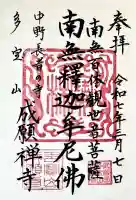 奉拝
令和七年三月七日
南無百体観世音菩薩
南無釋迦牟尼佛
中野長者の寺
多宝山
成願禅寺